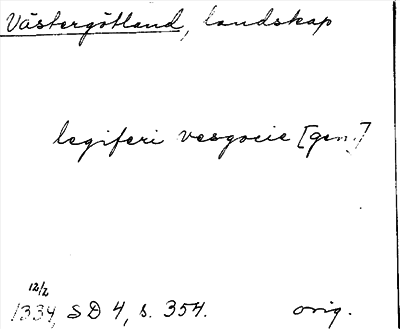 Västergötland, landskap
legiferi vesgocie [gen.]
12/2
1334, SD 4, s. 354. orig.